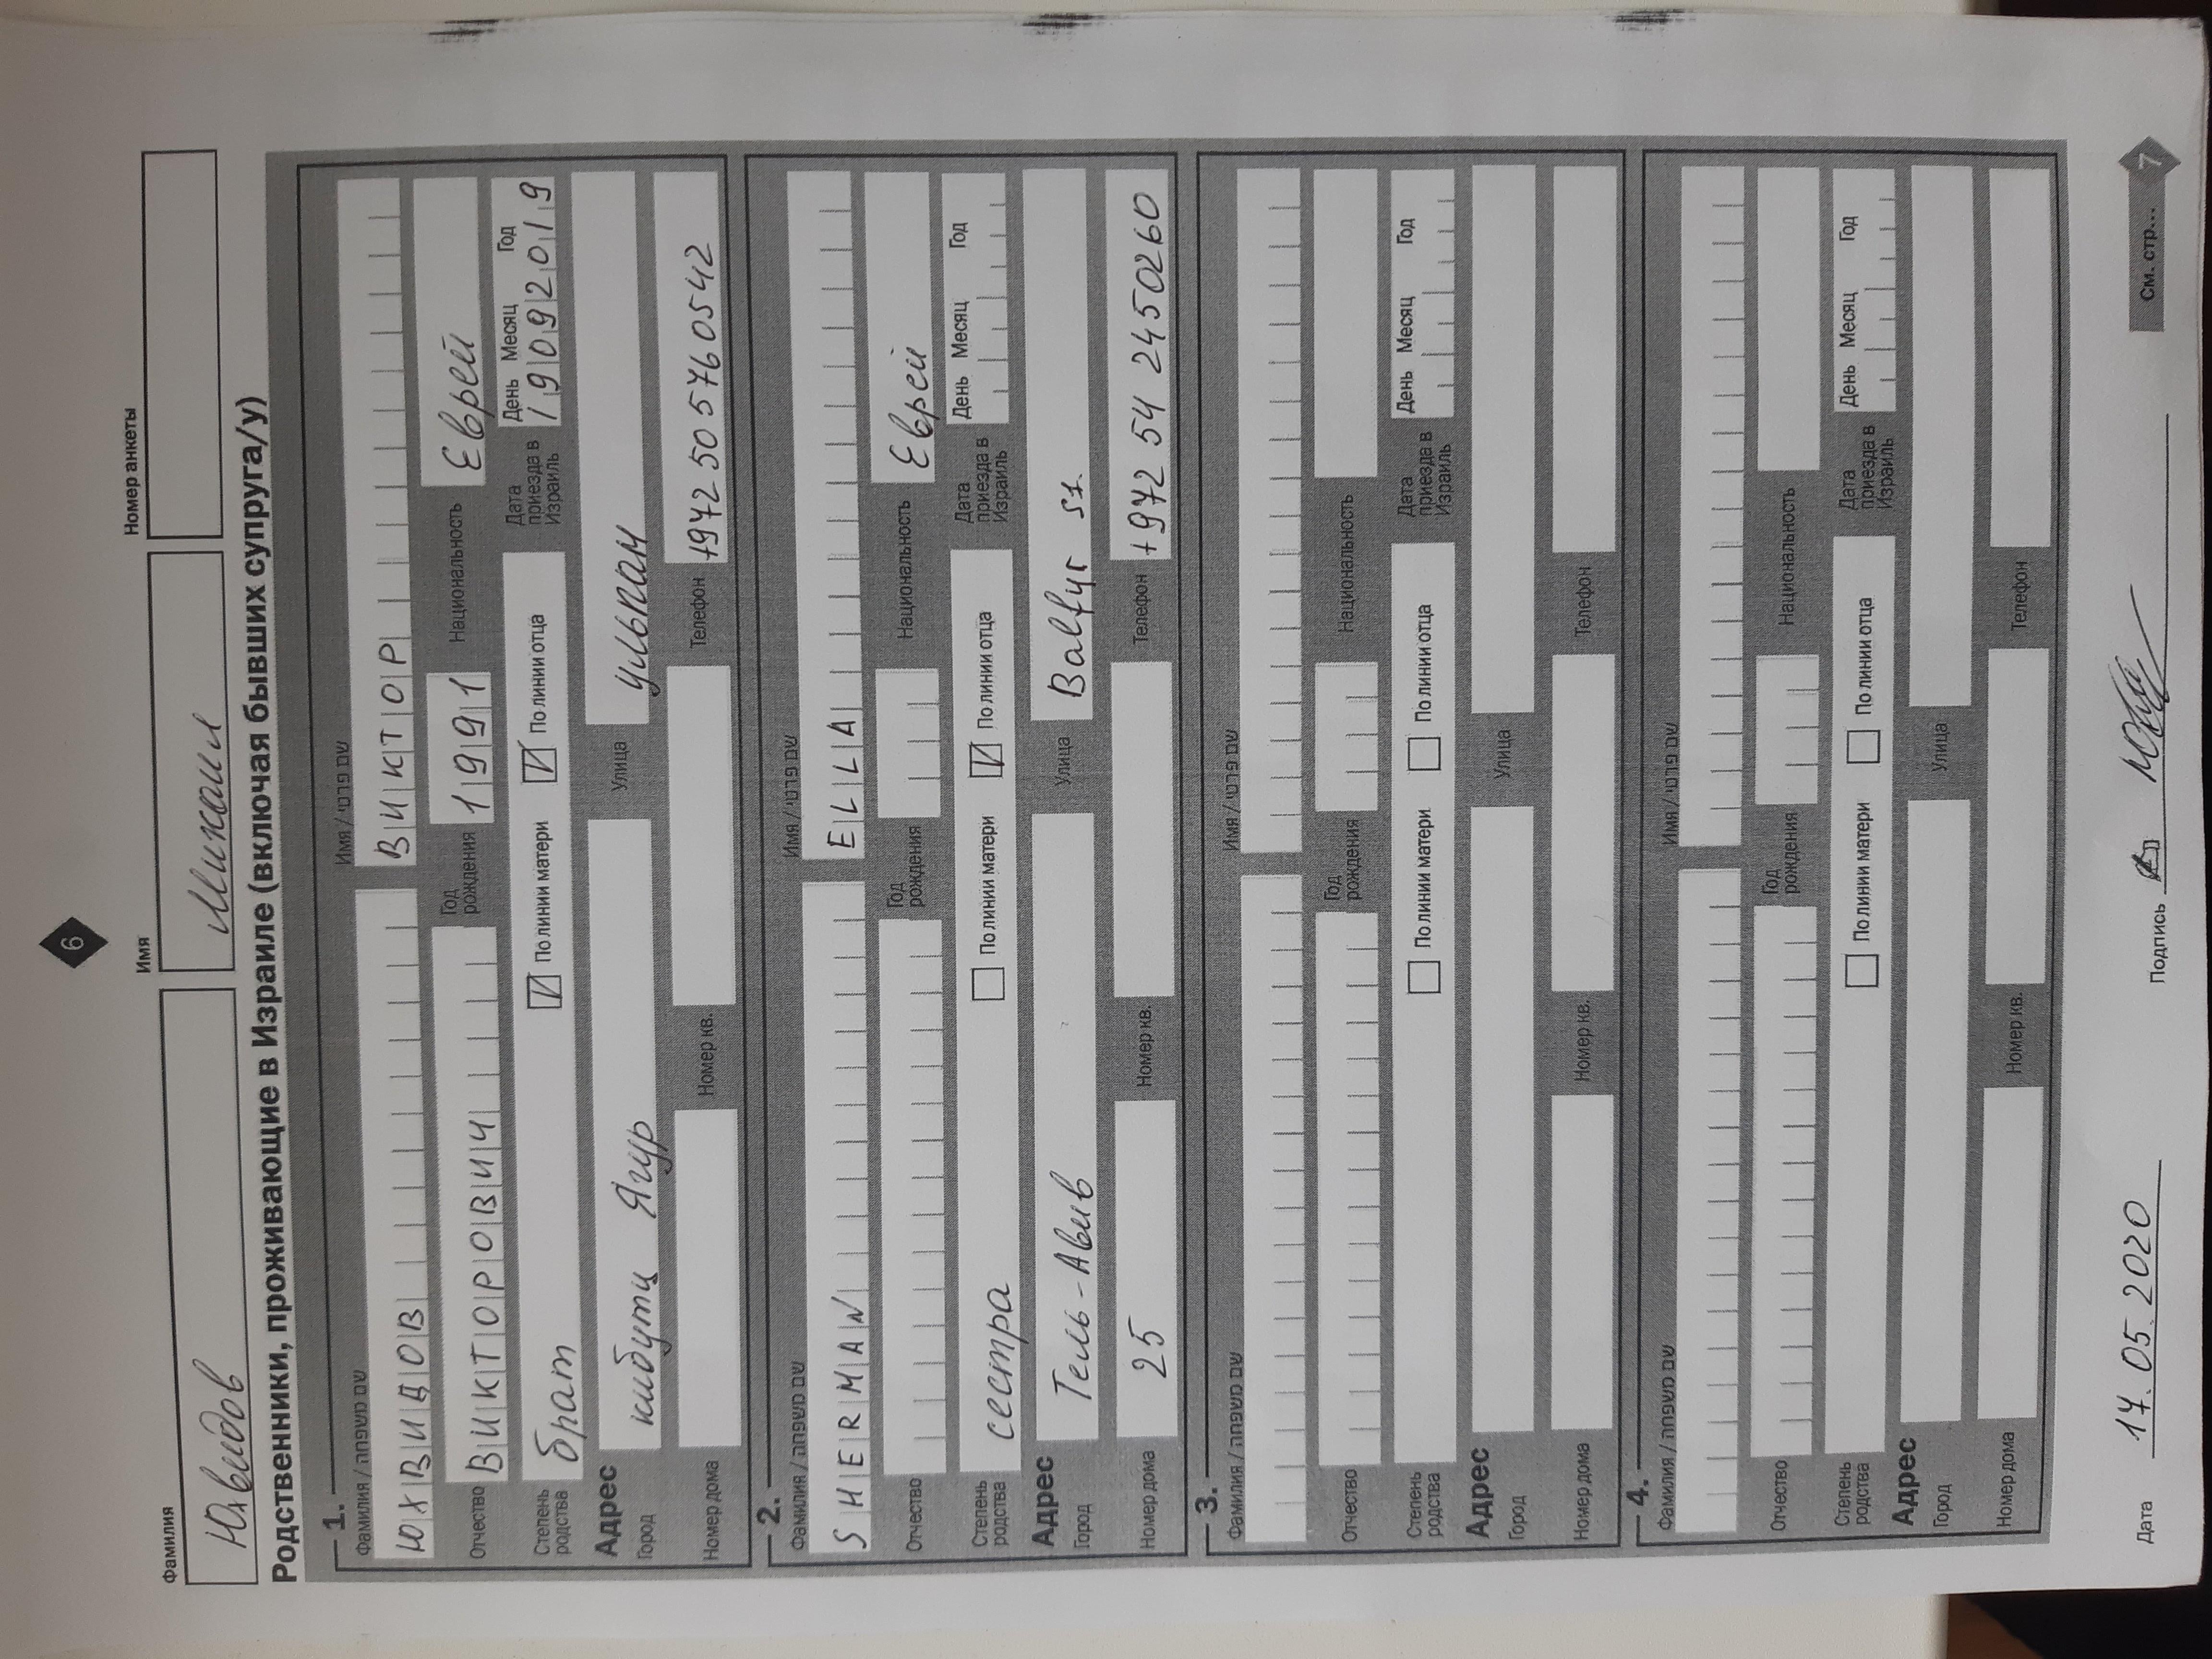 6
Фамилия Имя Номер анкеты
Юхвидов Михаил
Родственники, проживающие в Израиле (включая бывших супруга/у)
1.
Фамилия / שם משפחה Имя / שם פרטי
ЮХВИДОВ ВИКТОР
Отчество ВИКТОРОВИЧ Год рождения 1991 Национальность Еврей
Степень родства брат По линии матери По линии отца Дата приезда в Израиль День Месяц Год 19092019
Адрес
Город кибутц Ягур Улица ульпан
Номер дома Номер кв. Телефон +972 50 5760542
2.
Фамилия / שם משפחה Имя / שם פרטי
SHERMAN ELLA
Отчество Год рождения Национальность Еврей
Степень родства сестра По линии матери По линии отца Дата приезда в Израиль День Месяц Год
Адрес
Город Тель-Авив Улица Balfur st.
Номер дома 25 Номер кв. Телефон +972 54 2450260
3.
Фамилия / שם משפחה Имя / שם פרטי
Отчество Год рождения Национальность
Степень родства По линии матери По линии отца Дата приезда в Израиль День Месяц Год
Адрес
Город Улица
Номер дома Номер кв. Телефон
4.
Фамилия / שם משפחה Имя / שם פרטי
Отчество Год рождения Национальность
Степень родства По линии матери По линии отца Дата приезда в Израиль День Месяц Год
Адрес
Город Улица
Номер дома Номер кв. Телефон
Дата 17.05.2020 Подпись См. стр... 7